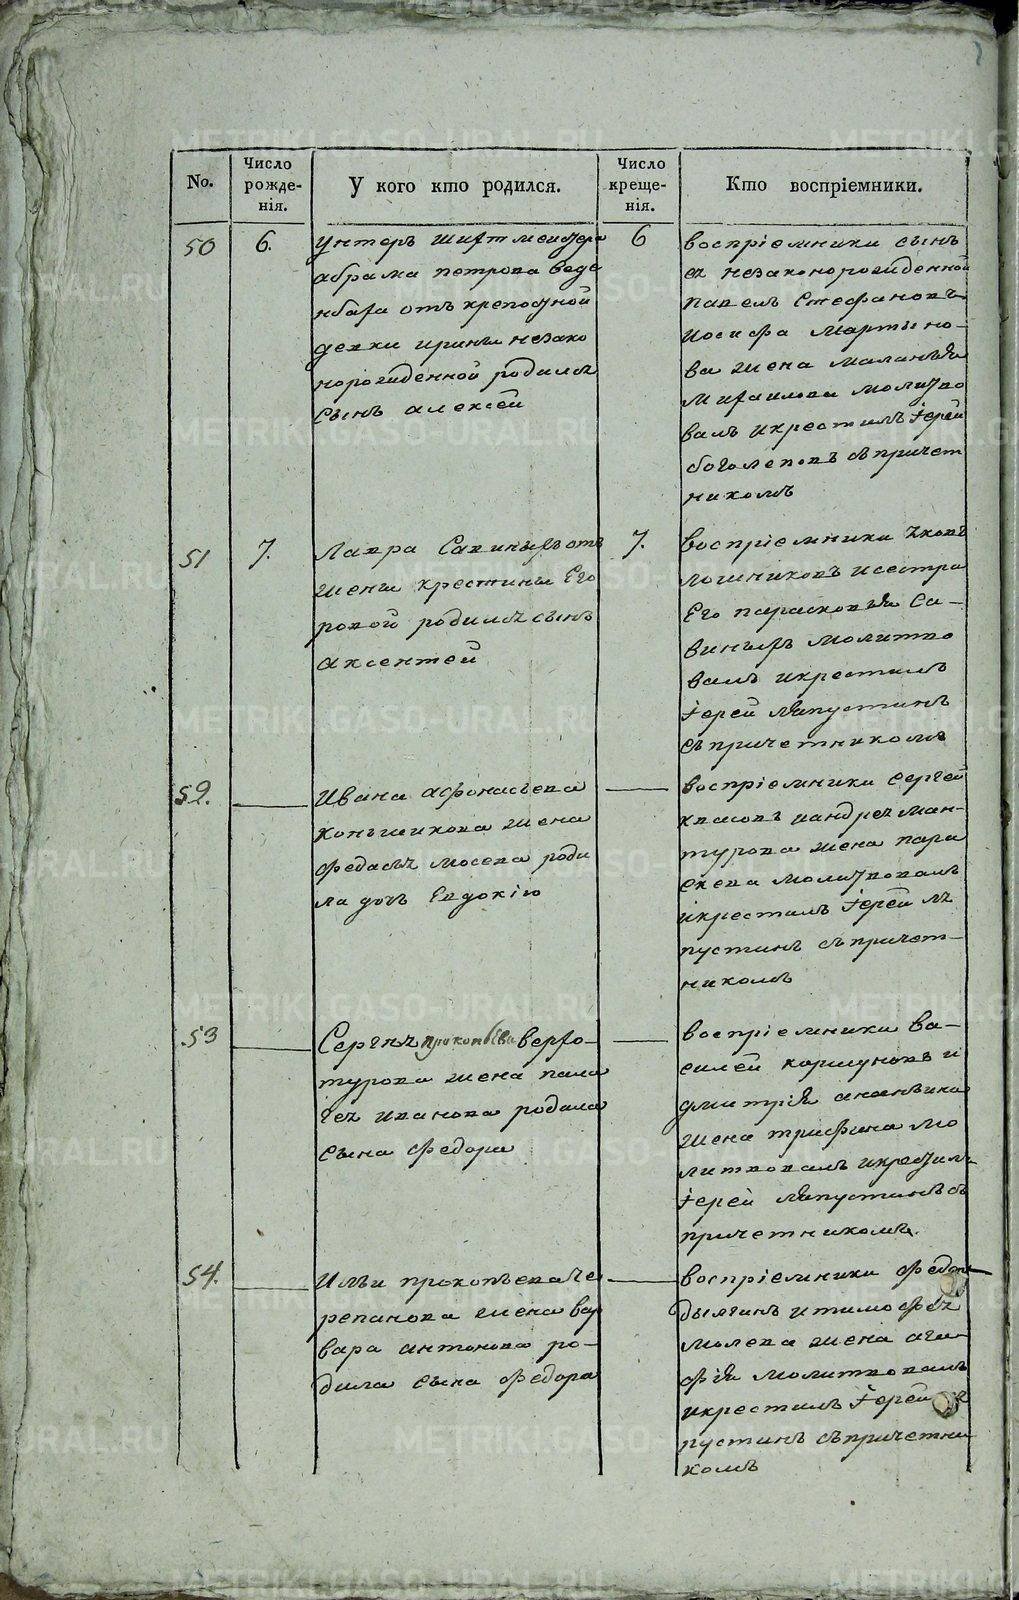 No.
Число рожде- нія.
У кого кто родился.
Число креще- нія.
Кто воспріемники.
50
6.
унтеръ шихтмейстера
абрама петрова веде
нбаха отъ крепосной
девки ирины незако
норожденной родилсѧ
сынъ алексей
6
воспріемники сынъ
еѧ незаконорожденной
павелъ Стефановъ
иосифа Мартыно-
ва жена маланья
михаилова молитво
валъ и крестилъ Іерей
боголеповъ съ причет
никомъ
51
7.
Лавра Савиныхъ отъ
жены крестины Его
ровой родилсѧ сынъ
аксентей
7.
воспріемники
и сестра
Его парасковья Са-
виныхъ молитво
валъ и крестилъ
Іерей лѧпустинъ
съ причетникомъ
52.
Ивана афонасьева
коньшикова жена
федосьѧ мосева роди
ла дочь Евдокію
воспріемники Сергей
квасовъ и андреѧ ман-
турова жена пара
скева молитвовалъ
и крестилъ Іерей лѧ
пустинъ съ причет-
никомъ
53
Сергеѧ прокопьева верхо-
турова жена пала
геѧ иванова родила
сына федора
воспріемники ва-
силей коршуновъ и
дмитрія ананьина
жена трифина мо
литвовалъ и крестилъ
Іерей лѧпустинъ съ
причетникомъ.
54.
Ильи прокопьева че
репанова жена вар
вара антонова ро-
дила сына федора
воспріемники федоръ
дылгинъ и тимофеѧ
молева жена ага-
фія молитвовалъ
и крестилъ Іерей лѧ
пустинъ съ причетни
комъ
METRIKI.GASO-URAL.RU